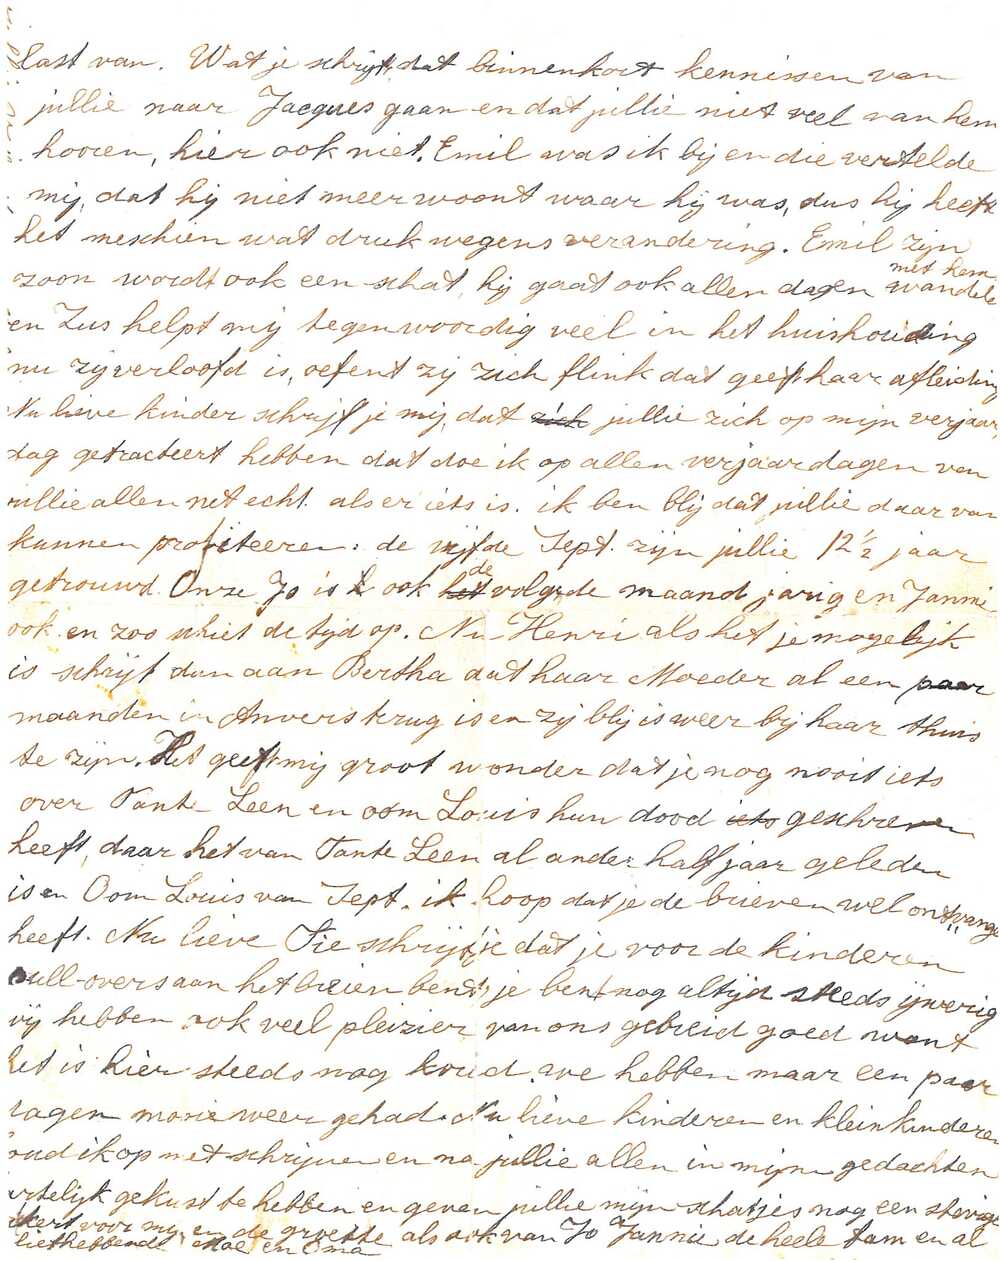 last van. Wat je schrijft, dat binnenkort kennissen van
jullie naar Jacques gaan en dat jullie niet veel van hem
hooren, hier ook niet. Emil was ik bij en die vertelde
mij, dat hij niet meer woont waar hij was, dus hij heeft
het meschien wat druk wegens verandering. Emil zijn
zoon wordt ook een schat, hij gaat ook allen dagen met hem wandele
en Zus helpt mij tegenwoordig veel in het huishouding
nu zij verloofd is, oefent zij zich flink dat geeft haar afleiding
Nu lieve kinder schrijft je mij, dat zich jullie zich op mijn verjaar
dag getracteert hebben dat doe ik op allen verjaardagen van
jullie allen net echt als er iets is. ik ben blij dat jullie daar van
kunnen profiteeren: de vijfde Sept. zijn jullie 12 1/2 jaar
getrouwd. Onze Jo is ook het de volgde maand jarig en Jannie
ook en zoo schiet de tijd op. Nu Henri als het je mogelijk
is schrijt dan aan Bertha dat haar Moeder al een paar
maanden in Anvers terug is en zij blij is weer bij haar thuis
te zijn. Het geeft mij groot wonder dat je nog nooit iets
over Tante Leen en oom Louis hun dood iets geschreven
heeft, daar het van Tante Leen al ander half jaar geleden
is en Oom Louis van Sept. ik hoop dat je de brieven wel ontvange
heeft. Nu lieve Fie schrijft je dat je voor de kinderen
pull-overs aan het breien bent, je bent nog altijd steeds ijverig
wij hebben ook veel pleizier van ons gebreid goed want
het is hier steeds nog koud. we hebben maar een paar
dagen mooie weer gehad. Nu lieve kinderen en kleinkinderen
houd ik op met schrijven en na jullie allen in mijn gedachten
hartelijk gekust te hebben en geven jullie mijn schatjes nog een stevige
voor mij en de groette als ook van Jo Jannie de heele fam en al
liefhebbende Moe en Oma